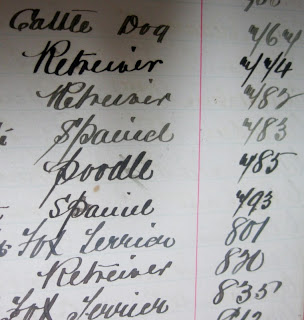 Cattle Dog 767
Retreiver 774
Retreiver 782
Spaniel 783
poodle 785
Spaniel 793
Fox Terrier 801
Retreiver 830
Fox Terrier 835